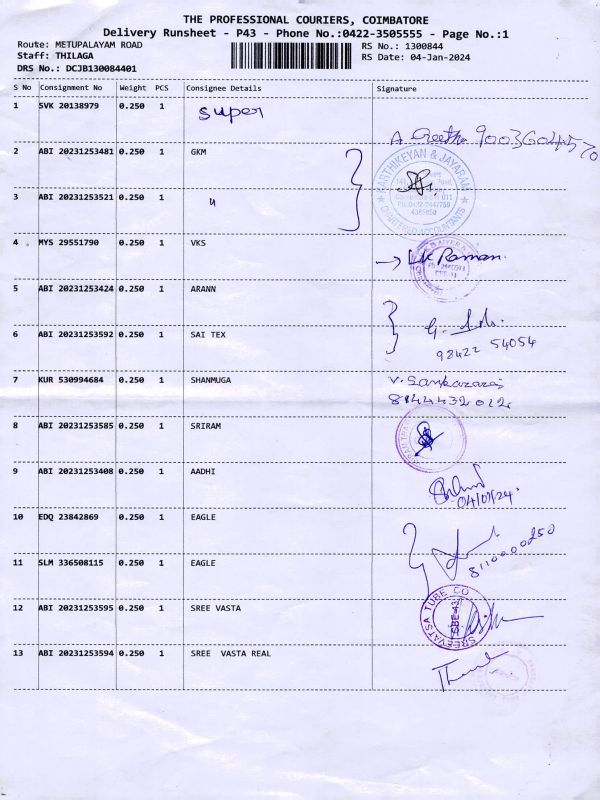 THE PROFESSIONAL COURIERS, COIMBATORE
Delivery Runsheet - P43 - Phone No.:0422-3505555 - Page No.:1
Route: METUPALAYAM ROAD RS No.: 1300844
Staff: THILAGA RS Date: 04-Jan-2024
DRS No.: DCJB130084401
S No Consignment No Weight PCS Consignee Details Signature
1 SVK 20138979 0.250 1 super
A. Geetha 9003604570
2 ABI 20231253481 0.250 1 GKM
KARTHIKEYAN & JAYARAM
CHARTERED ACCOUNTANTS
3 ABI 20231253521 0.250 1 "
4 MYS 29551790 0.250 1 VKS
Raman.
5 ABI 20231253424 0.250 1 ARANN
6 ABI 20231253592 0.250 1 SAI TEX
98422 54054
7 KUR 530994684 0.250 1 SHANMUGA V. Sankararaj
8144432012
8 ABI 20231253585 0.250 1 SRIRAM
9 ABI 20231253408 0.250 1 AADHI
04/01/24.
10 EDQ 23842869 0.250 1 EAGLE
8110000250
11 SLM 336508115 0.250 1 EAGLE
12 ABI 20231253595 0.250 1 SREE VASTA
SREEVATSA TUBE CO
CBE-43
13 ABI 20231253594 0.250 1 SREE VASTA REAL